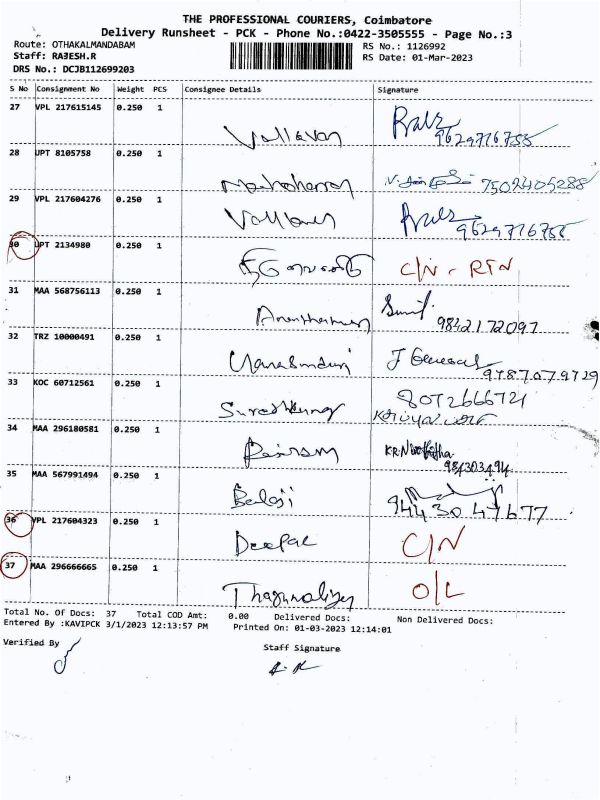 THE PROFESSIONAL COURIERS, Coimbatore
Delivery Runsheet - PCK - Phone No.:0422-3505555 - Page No.:3
Route: OTHAKALMANDABAM RS No.: 1126992
Staff: RAJESH.R RS Date: 01-Mar-2023
DRS No.: DCJB112699203
S No Consignment No Weight PCS Consignee Details Signature
27 VPL 217615145 0.250 1
Vallavan 9629776755
28 UPT 8105758 0.250 1
Manoharan 7502405288
29 VPL 217604276 0.250 1
9629776755
30 UPT 2134980 0.250 1
C/N - RTN
31 MAA 568756113 0.250 1
9842172097
32 TRZ 10000491 0.250 1
9787079729
33 KOC 60712561 0.250 1
Sureshkumar 8072666721
34 MAA 296180581 0.250 1
35 MAA 567991494 0.250 1
Balaji 9443047677
36 VPL 217604323 0.250 1
Deepak C/N
37 MAA 296666665 0.250 1
O/L
Total No. Of Docs: 37 Total COD Amt: 0.00 Delivered Docs: Non Delivered Docs:
Entered By :KAVIPCK 3/1/2023 12:13:57 PM Printed On: 01-03-2023 12:14:01
Verified By Staff Signature